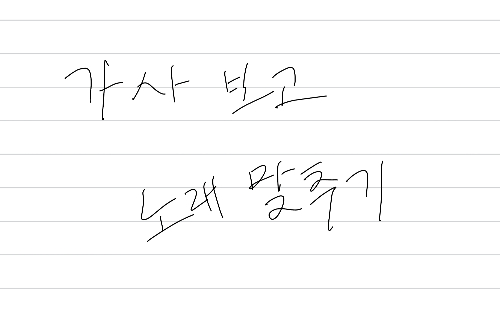 가사 보고
노래 맞추기